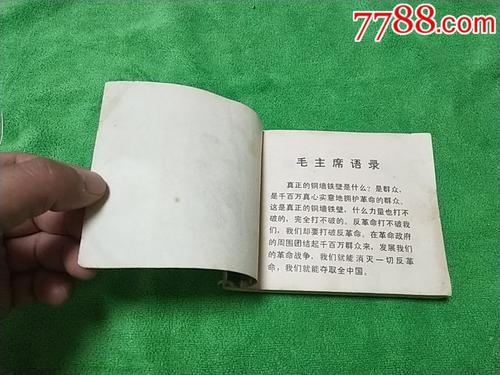 7788.com
毛主席语录
真正的铜墙铁壁是什么？是群众，
是千百万真心实意地拥护革命的群众。
这是真正的铜墙铁壁，什么力量也打不
破的，完全打不破的。反革命打不破我
们，我们却要打破反革命。在革命政府
的周围团结起千百万群众来，发展我们
的革命战争，我们就能消灭一切反革
命，我们就能夺取全中国。